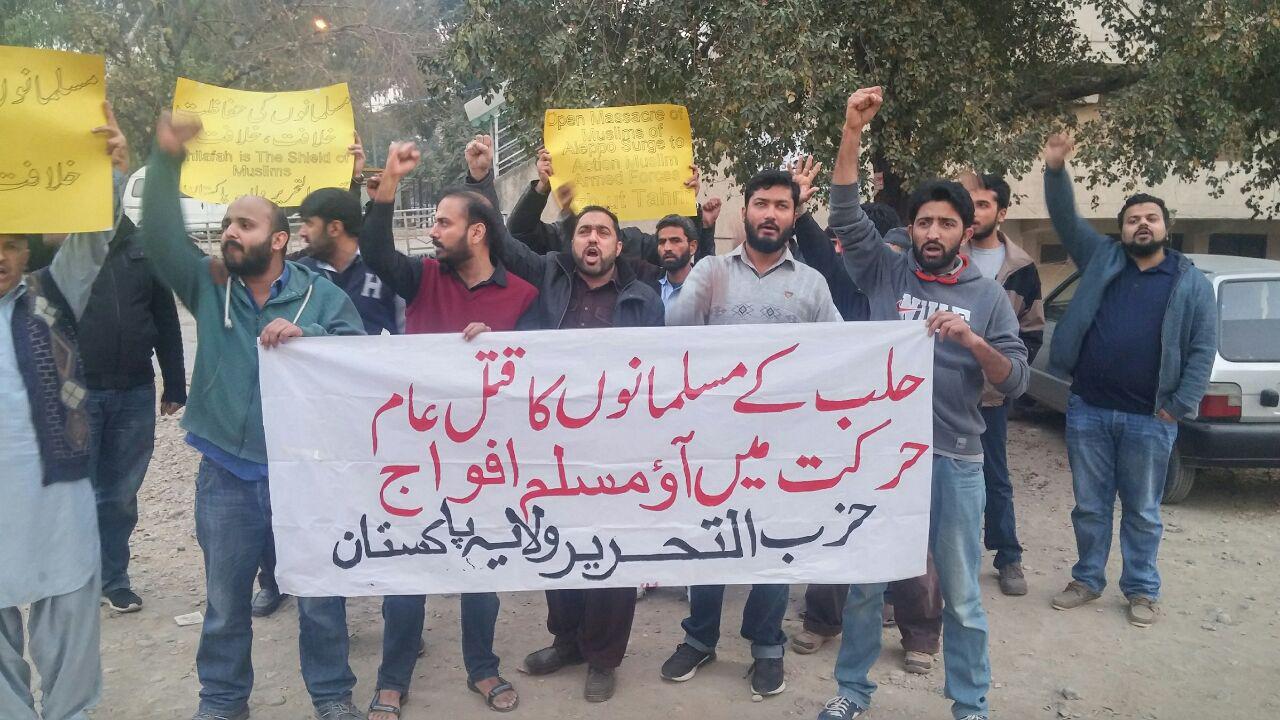 مسلمانوں
خلافت
مسلمانوں کی حفاظت
خلافت، خلافت
Khilafah is The Shield of
Muslims
حزب التحریر ولایہ پاکستان
Open Massacre of
Muslims of
Aleppo Surge to
Action Muslim
Armed Forces
Hizbut Tahrir
H
حلب کے مسلمانوں کا قتل عام
حرکت میں آؤ مسلم افواج
حزب التحریر ولایہ پاکستان